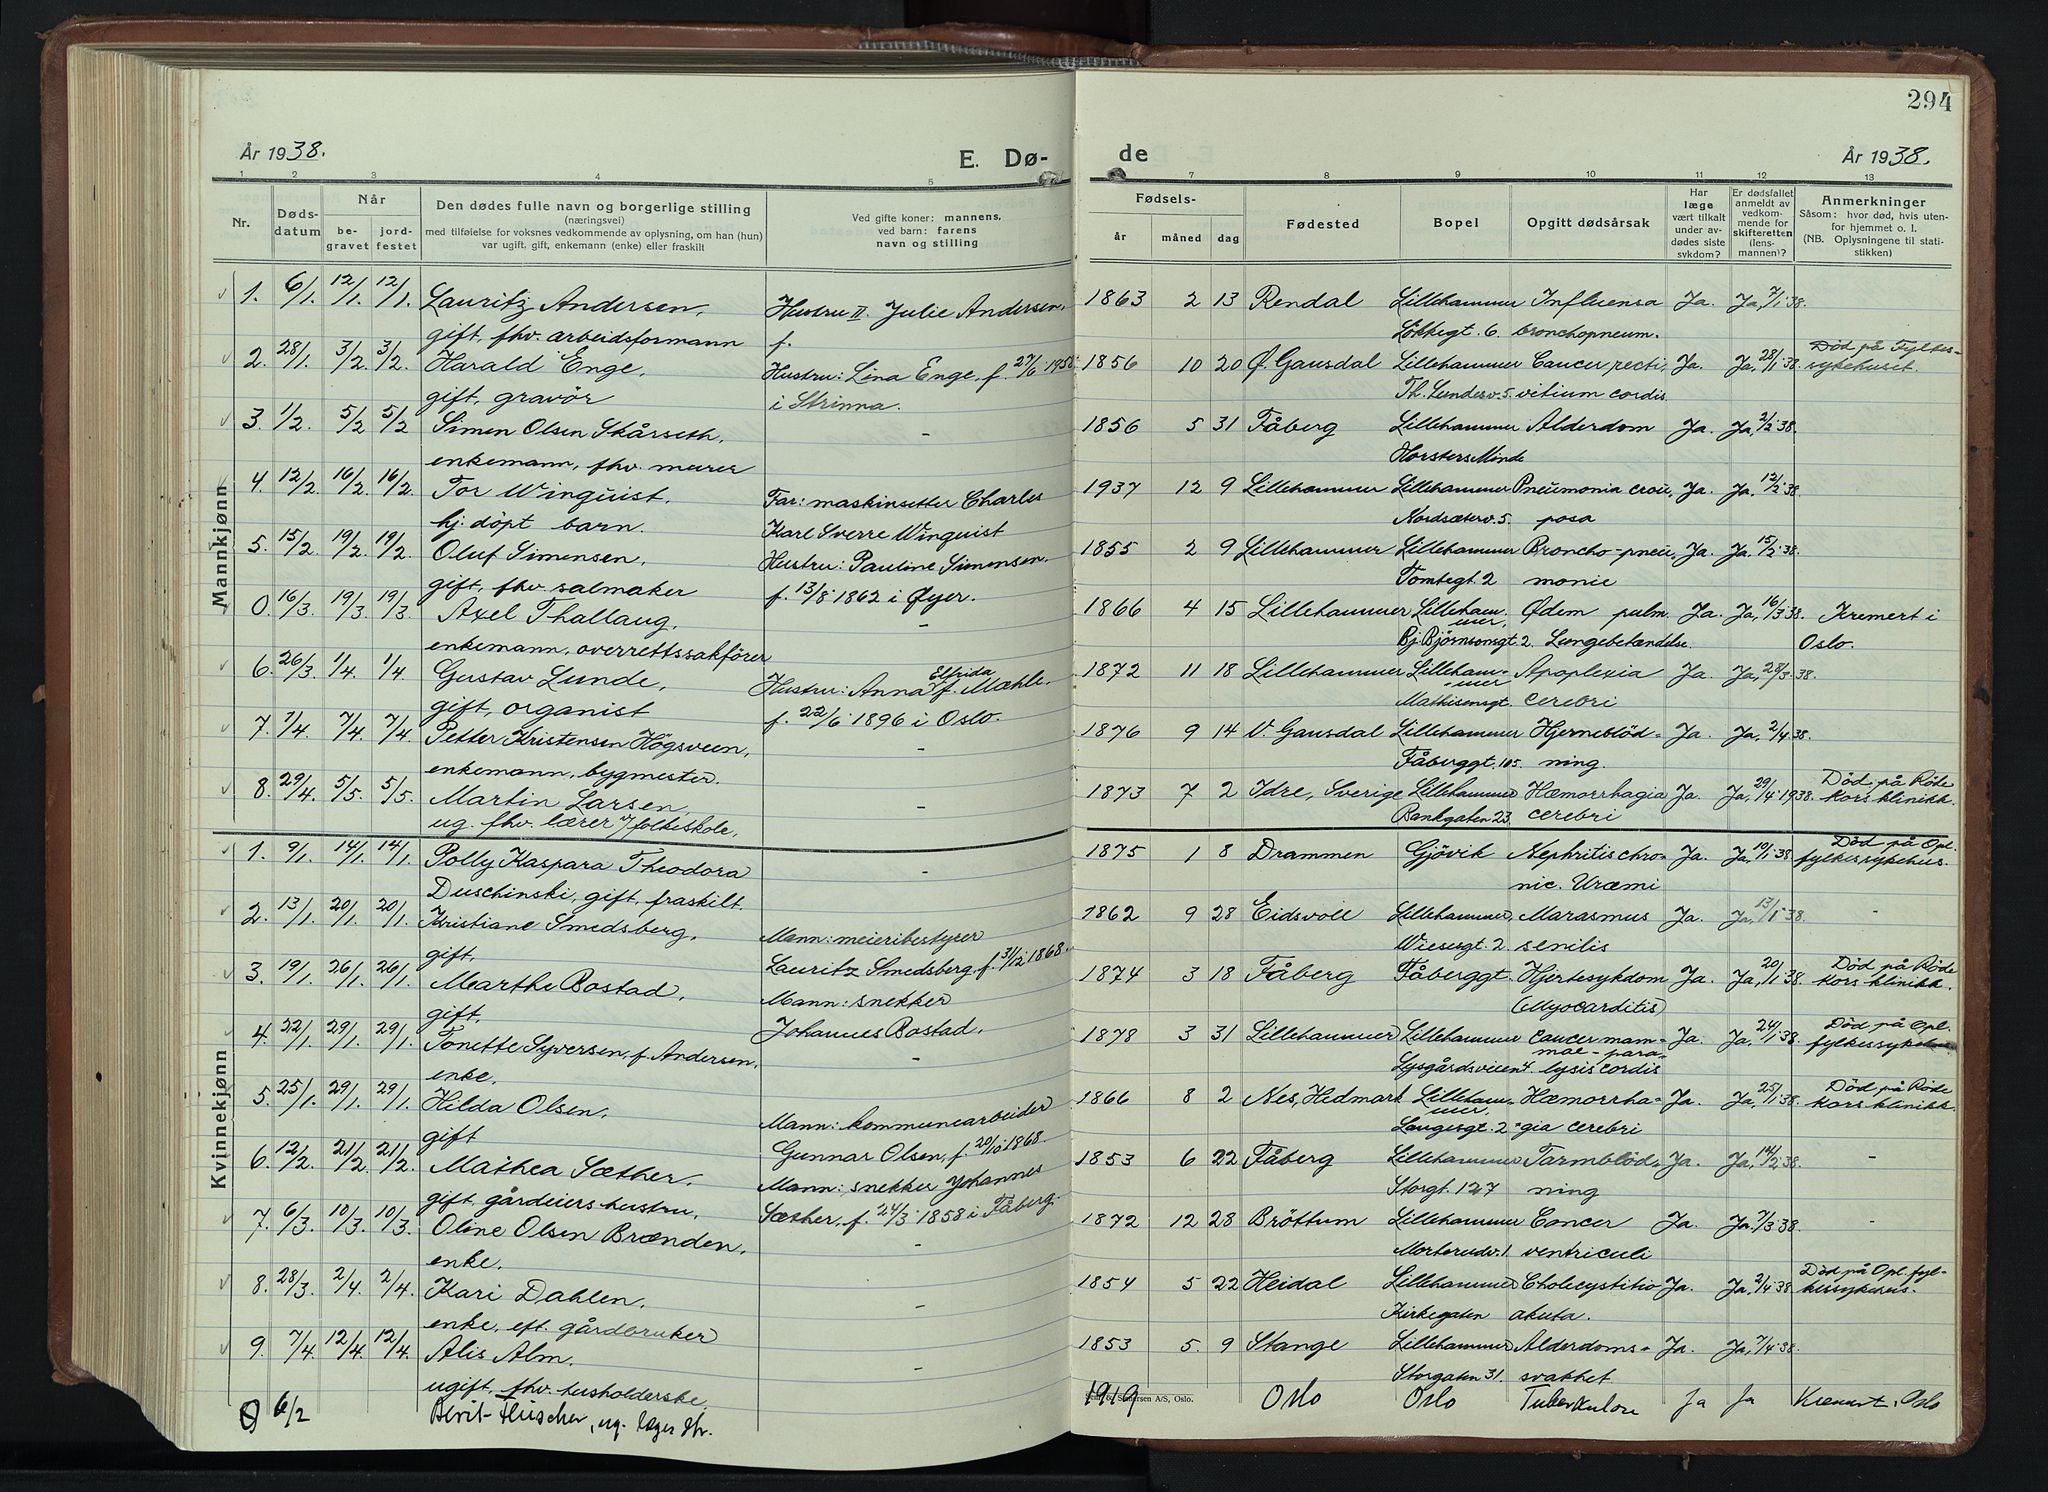 294
År 1938.
E. Dø-
de
År 1938.
1 2 3 3 4 5 7 8 9 10 11 12 13
Nr.
Døds-
datum
Når
be-
gravet
jord-
festet
Den dødes fulle navn og borgerlige stilling
(næringsvei)
med tilføielse for voksnes vedkommende av oplysning, om han (hun)
var ugift, gift, enkemann (enke) eller fraskilt
Ved gifte koner: mannens,
ved barn: farens
navn og stilling
Fødsels-
år måned dag
Fødested
Bopel
Opgitt dødsårsak
Har
læge
vært tilkalt
under av-
dødes siste
sykdom?
Er dødsfallet
anmeldt av
vedkom-
mende for
skifteretten
(lens-
mannen)?
Anmerkninger
Såsom: hvor død, hvis uten-
for hjemmet o. l.
(NB. Oplysningene til stati-
stikken)
Mannkjønn
1. 6/1. 12/1. 12/1. Lauritz Andersen, Hustru II. Julie Andersen, 1863 2 13 Rendal Lillehammer Influensa Ja. Ja, 7/1 38.
gift, fhv. arbeidsformann f. Løkkegt. 6. bronchopneum.
2. 28/1. 3/2. 3/2. Harald Enge, Hustru: Lina Enge, f. 27/6 1958 1856 10 20 Ø. Gausdal Lillehammer Cancer recti, Ja. Ja, 28/1 38. Död på Fylkes-
sykehuset.
gift, gravör i Strinna. Th. Lundesv. 5. vitium cordis
3. 1/2. 5/2 5/2 Simen Olsen Skårseth, - 1856 5 31 Fåberg Lillehammer Alderdom Ja. Ja, 2/2 38.
enkemann, fhv. murer Horsters Minde
4. 12/2. 16/2. 16/2. Tor Winquist, Far: maskinsetter Charles 1937 12 9 Lillehammer Lillehammer Pneumonia crou- Ja. Ja, 12/2 38.
hj. döpt barn. Karl Sverre Winquist Nordsæterv. 5. posa
5. 15/2. 19/2. 19/2. Oluf Simensen, Hustru: Pauline Simensen. 1855 2 9 Lillehammer Lillehammer Broncho-pneu- Ja. Ja, 15/2 38.
gift, fhv. salmaker f. 13/8 1862 i Øyer. Tomtegt. 2 monie
0. 16/3 19/3 19/3 Axel Thallaug, - 1866 4 15 Lillehammer Lilleham-
mer, Ødem pulm. Ja. Ja, 16/3 38. Kremert i
enkemann, overrettssakförer Bj. Björnsonsgt. 2. Lungebetændelse. Oslo.
6. 26/3 1/4 1/4 Gustav Lunde, Hustru: Anna Elfrida f. Mæhle. 1872 11 18 Lillehammer Lilleham-
mer Apoplexia Ja. Ja, 28/3 38.
gift, organist f. 22/6 1896 i Oslo. Mathisensgt. cerebri
7. 1/4. 7/4. 7/4. Petter Kristensen Högsveen, - 1876 9 14 V. Gausdal Lillehammer Hjerneblöd- Ja. Ja, 2/4 38.
enkemann, bygmester. Fåberggt. 105. ning.
8. 29/4. 5/5. 5/5. Martin Larsen, - 1873 7 2 Idre, Sverige Lillehammer Hæmorrhagia Ja. Ja, 29/4 1938. Död på Røde
kors klinikk.
ug. fhv. lærer v/ folkeskole. Bankgaten 23. cerebri
Kvinnekjønn
1. 9/1. 14/1. 14/1. Polly Kaspara Theodora - 1875 1 8 Drammen Gjövik Nephritis chro- Ja. Ja, 10/1 38. Död på Opl.
fylkessykehus.
Duschinski, gift, fraskilt. nic. Uræmi
2. 13/1. 20/1. 20/1. Kristiane Smedsberg, Mann: meieribestyrer 1862 9 28 Eidsvoll Lillehammer, Marasmus Ja. Ja, 13/1 38. -
gift, Lauritz Smedsberg, f. 31/12 1868. Wiesesgt. 2. senilis
3. 19/1. 26/1. 26/1. Marthe Bostad, Mann: snekker 1874 3 18 Fåberg Fåberggt. Hjertesykdom Ja. Ja, 20/1 38. Död på Røde
kors klinikk.
gift, Johannes Bostad. (Myocarditis)
4. 22/1. 29/1. 29/1. Tonette Syversen, f. Andersen, - 1878 3 31 Lillehammer Lillehammer cancer mam- Ja. Ja, 24/1 38. Död på Opl.
fylkessykehus
enke. Lysgårdsveien 4. mae-para-
lysis cordis
5. 25/1. 29/1. 29/1. Hilda Olsen, Mann: kommunearbeider 1866 8 2 Nes, Hedmark Lilleham-
mer, Hæmorrha- Ja. Ja, 25/1 38. Död på Røde
kors klinikk.
gift Gunnar Olsen, f. 20/10 1868. Langesgt. 2 gia cerebri
6. 12/2. 21/2. 21/2. Mathea Sæther, Mann: snekker Johannes 1853 6 22 Fåberg Lillehammer Tarmblöd- Ja. Ja, 14/2 38. -
gift gårdeiers hustru, Sæther, f. 24/3 1858 i Fåberg. Storgt. 127 ning
7. 6/3 10/3 10/3 Oline Olsen Brænden, - 1872 12 28 Bröttum Lillehammer Cancer Ja. Ja, 7/3 38. -
enke. Morterudv. 1. ventriculi
8. 28/3. 2/4. 2/4. Kari Dahlen, - 1854 5 22 Heidal Lillehammer Cholecystitio Ja. Ja, 2/4 38. Död på Opl. fyl-
kessykehus.
enke, eft. gårdbruker Kirkegaten akuta.
9. 7/4. 12/4. 12/4. Alis Alm. - 1853 5. 9 Stange Lillehammer Alderdoms- Ja. Ja, 7/4 38.
ugift, fhv. husholderske. Storgaten 31. svakhet
0 6/2 Berit Fluscher, ug. læges dtr. 1919 Oslo Oslo Tuberkulose Ja Ja Kremert, Oslo
A/S, Oslo.